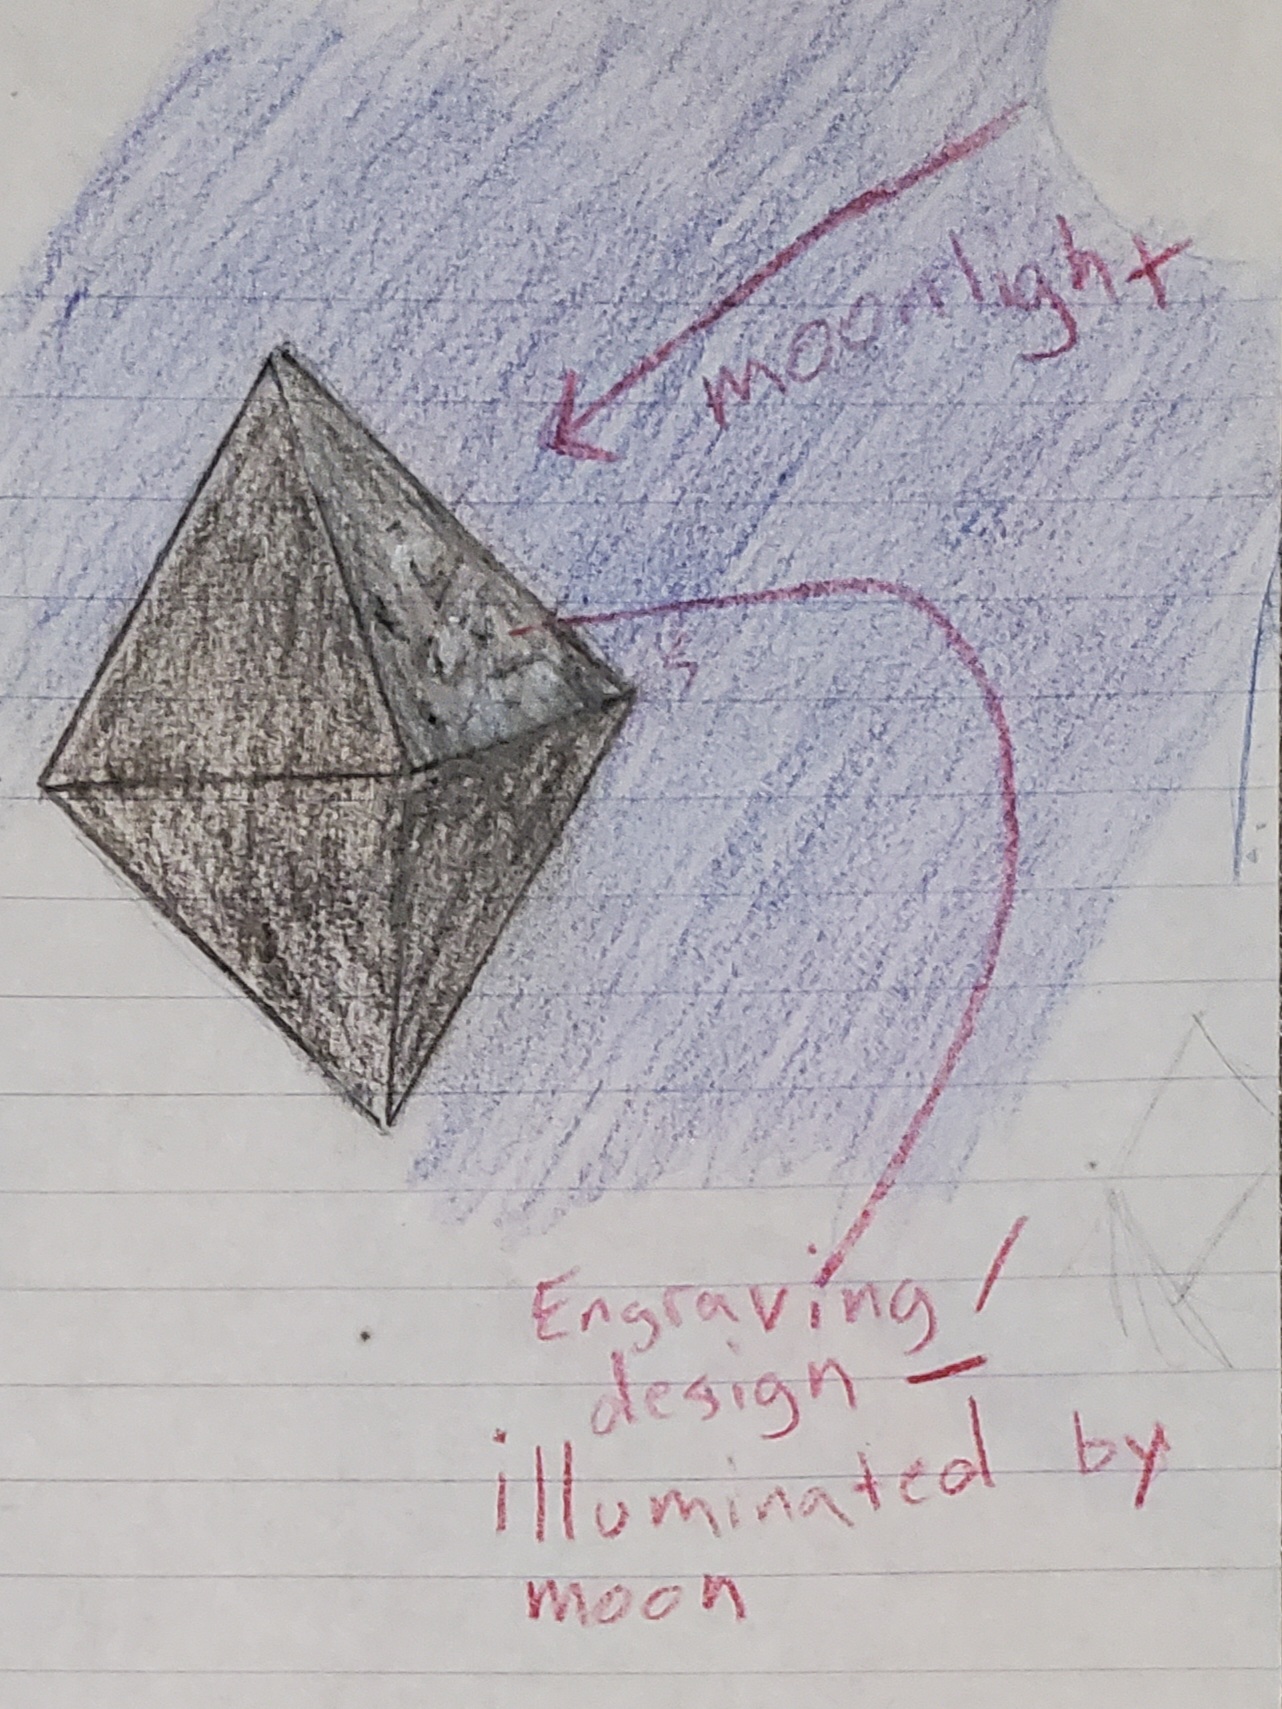 moonlight
Engraving /
design —
illuminated by
moon